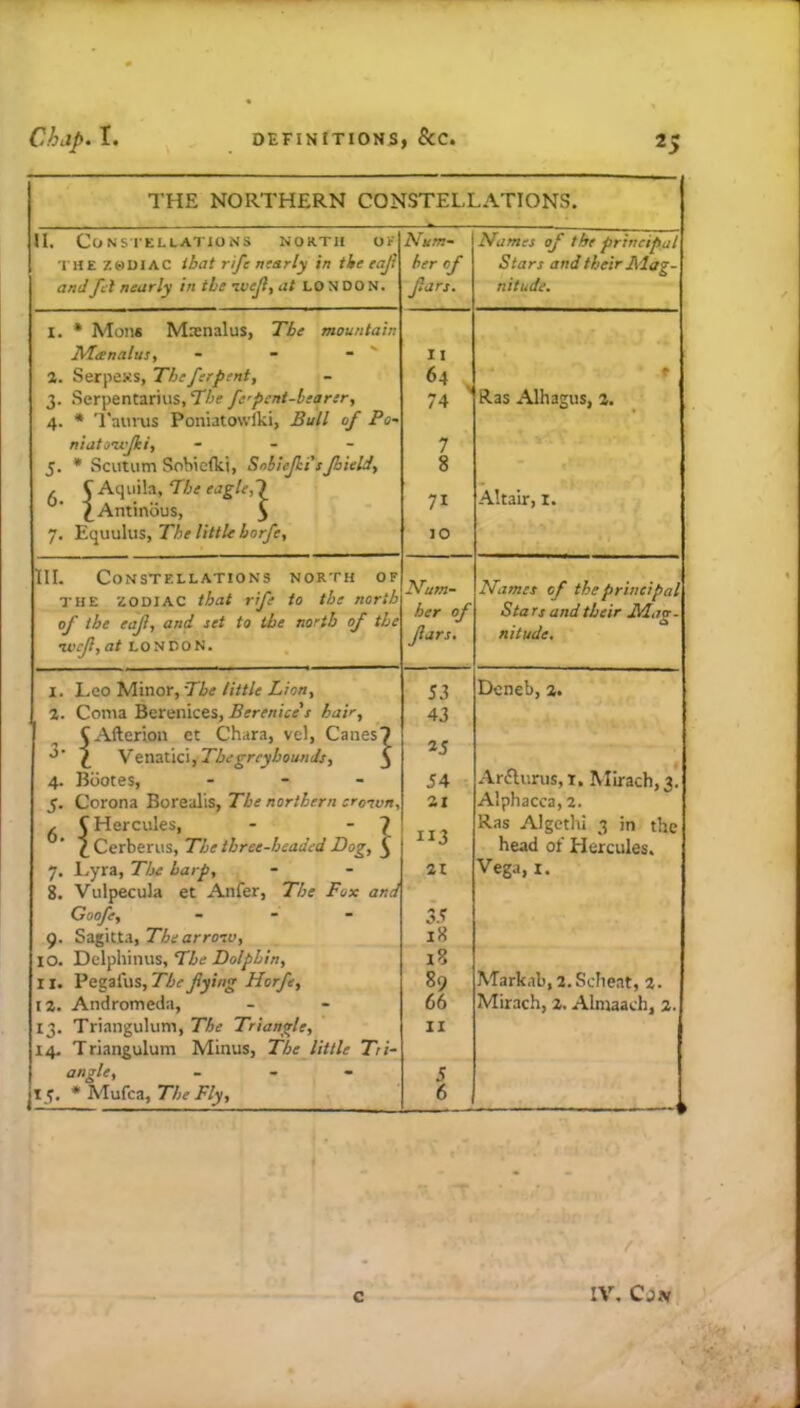 Chap. I. DEFINITIONS, &c. 25
THE NORTHERN CONSTELLATIONS.
II. CONSTELLATIONS NORTH OF THE ZODIAC that riſe nearly in the eaſt and ſet nearly in the weſt, at LONDON. | Number of ſtars. | Names of the principal Stars and their Magnitude.
1. * Mons Mænalus, The mountain
Mænalus, - - - 11
2. Serpens, The ſerpent, - 64
3. Serpentarius, The ſerpent-bearer, 74 Ras Alhagus, 2.
4. * Taurus Poniatowſki, Bull of Po-
niatowſki, - - - 7
5. * Scutum Sobieſki, Sobieſki's ſhield, 8
6. { Aquila, The eagle, }
{ Antinöus, } 71 Altair, 1.
7. Equulus, The little horſe, 10
III. CONSTELLATIONS NORTH OF
THE ZODIAC that riſe to the north
of the eaſt, and set to the north of the
weſt, at LONDON.
Num-
ber of
ſtars.
Names of the principal
Stars and their Mag-
nitude.
1. Leo Minor, The little Lion, 53 Deneb, 2.
2. Coma Berenices, Berenice's hair, 43
3. { Aſterion et Chara, vel, Canes }
{ Venatici, The greyhounds, } 25
4. Böotes, - - - 54 Arcturus, 1. Mirach, 3.
5. Corona Borealis, The northern crown, 21 Alphacca, 2.
6. { Hercules, - - }
{ Cerberus, The three-headed Dog, } 113 Ras Algethi 3 in the
head of Hercules.
7. Lyra, The harp, - - 21 Vega, 1.
8. Vulpecula et Anſer, The Fox and
Gooſe, - - - 35
9. Sagitta, The arrow, 18
10. Delphinus, The Dolphin, 18
11. Pegaſus, The flying Horſe, 89 Markab, 2. Scheat, 2.
12. Andromeda, - - 66 Mirach, 2. Almaach, 2.
13. Triangulum, The Triangle, 11
14. Triangulum Minus, The little Tri-
angle, - - - 5
15. * Muſca, The Fly, 6
C IV. CON